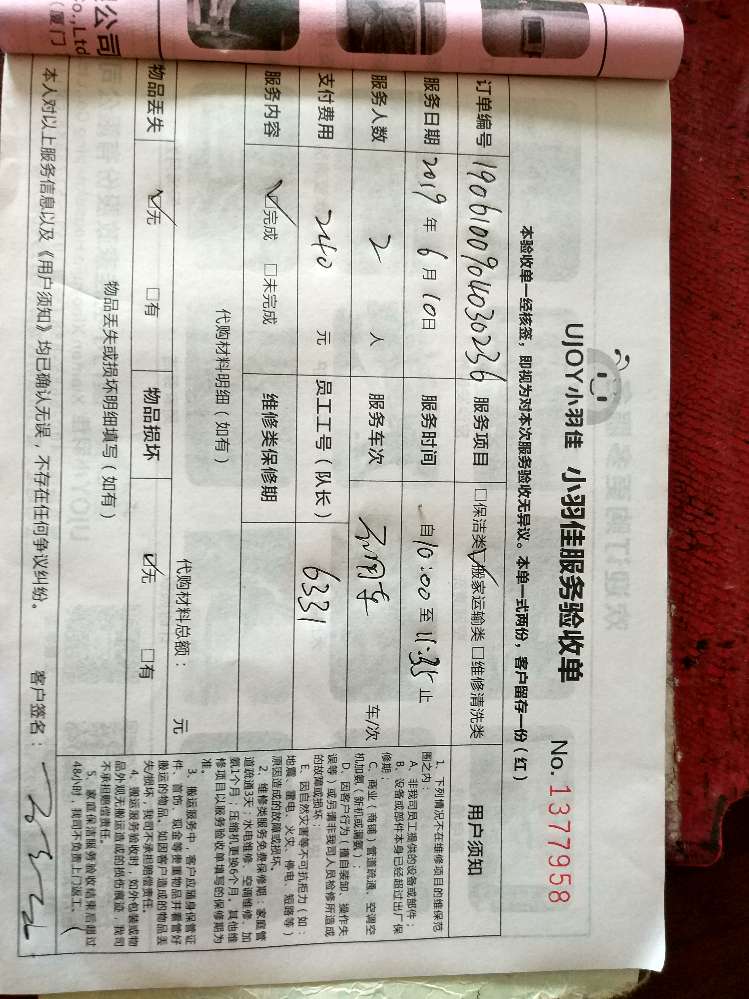 公司
Co.,Ltd
(厦门
UJOY小羽佳 小羽佳服务验收单 No. 1377958
本验收单一经核签，即视为对本次服务验收无异议。本单一式两份，客户留存一份（红）
订单编号 1906100904030236 服务项目 □保洁类 ☑搬家运输类 □维修清洗类
服务日期 2019年6月10日 服务时间 自10:00至11:35止
服务人数 2人 服务车次 不用车 车/次
支付费用 240元 员工工号（队长） 6331
服务内容 ☑完成 □未完成 维修类保修期
代购材料明细（如有） 代购材料总额： 元
物品丢失 ☑无 □有 物品损坏 ☑无 □有
物品丢失或损坏明细填写（如有）
本人对以上服务信息以及《用户须知》均已确认无误，不存在任何争议纠纷。 客户签名：
用户须知
1、下列情况不在维修项目的维保范
围之内：
A、非我司员工提供的设备或部件；
B、设备或部件本身已经超过出厂保
修期；
C、商业（商铺）管道疏通、空调空
机加氨（新机或漏氨）；
D、因客户行为（擅自装卸、操作失
误等）或另请非我司人员检修所造成
的故障或损坏；
E、因自然灾害等不可抗拒力（如：
地震、雷电、火灾、停电、短路等）
原因造成的故障或损坏。
2、维修类服务免费保修期：家庭管
道疏通3天；水电维修、空调维修、加
氨1个月；压缩机更换6个月，其他维
修项目以服务验收单填写的保修期为
准。
3、搬运服务中，客户应随身保管证
件、首饰、现金等贵重物品并看管好
搬运的物品，如因客户造成的物品丢
失/损坏，我司不承担赔偿责任。
4、搬运服务验收时，如外包装或物
品外观无搬运造成的损伤痕迹，我司
不承担赔偿责任。
5、家庭保洁服务验收结束后超过
48小时，我司不负责上门返工。